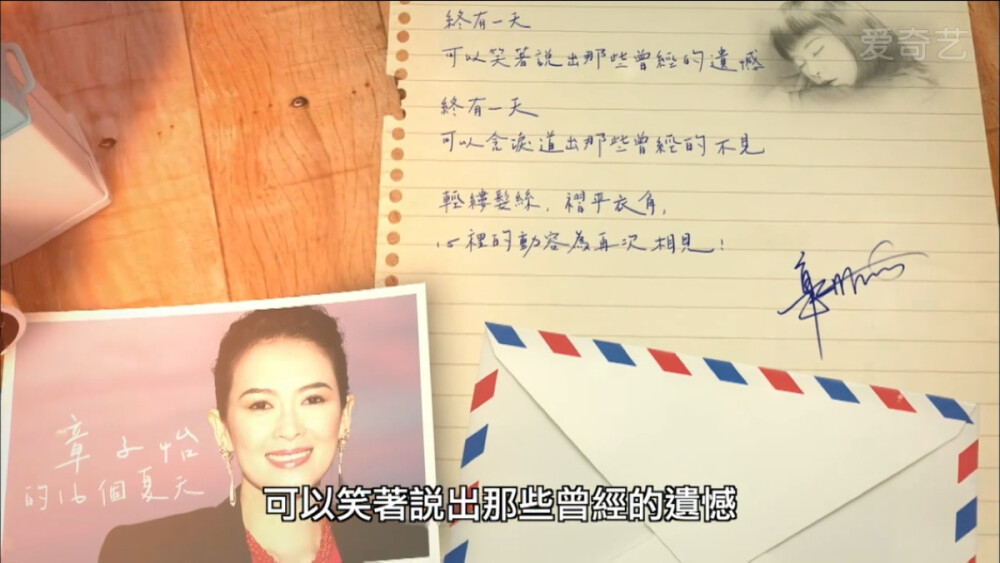 終有一天
可以笑著說出那些曾經的遺憾
終有一天
可以含淚道出那些曾經的不見
輕縷髮絲，褶平衣角，
心裡的動容為再次相見！
爱奇艺
章子怡
的16個夏天
可以笑著說出那些曾經的遺憾